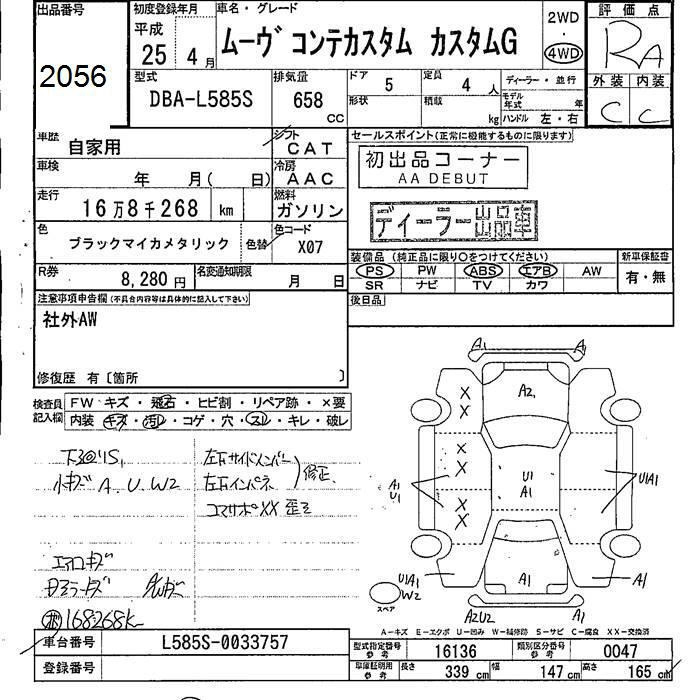 出品番号
2056
初度登録年月
平成
25 4月
車名・グレード
ムーヴ コンテカスタム カスタムG
2WD
・
4WD
評価点
RA
外装 内装
C C
型式
DBA-L585S
排気量
658
CC
ドア 5
定員 4 人
ディーラー・並行
形状
積載 kg
モデル年式 年
ハンドル 左・右
車歴
自家用
シフト
CAT
車検
年 月( 日)
冷房
AAC
走行
16万8千268 km
燃料
ガソリン
色
ブラックマイカメタリック 色替
色コード
X07
R券
8,280円
名変通知期限
月 日
セールスポイント(正常に機能するものに限ります)
初出品コーナー
AA DEBUT
ディーラー出品車
装備品 (純正品に限り○をつけてください)
PS PW ABS エアB AW
SR ナビ TV カワ
新車保証書
有・無
後日品
注意事項申告欄(不具合内容等は具体的に記入して下さい)
社外AW
修復歴 有〔箇所 〕
検査員記入欄
FW キズ・飛石・ヒビ割・リペア跡・×要
内装 キズ・汚レ・コゲ・穴・スレ・キレ・破レ
小キズ A. U. W2
左右サイドメンバー
左右インパネ
修正
コアサポXX 歪ミ
エアロキズ
168268K
A1 A1
A2,
X
X
X
X
X
X
A1
U1
U1
A1
U1A1
U1A1
W2
スペア
A1
A1
A2U2
A1
A−キズ E−エクボ U−凹み W−補修跡 S−サビ C−腐食 XX−交換済
車台番号
L585S-0033757
登録番号
型式指定番号
参考
16136
類別区分番号
参考
0047
車庫証明用
参考
長さ 339 cm
幅 147 cm
高さ 165 cm